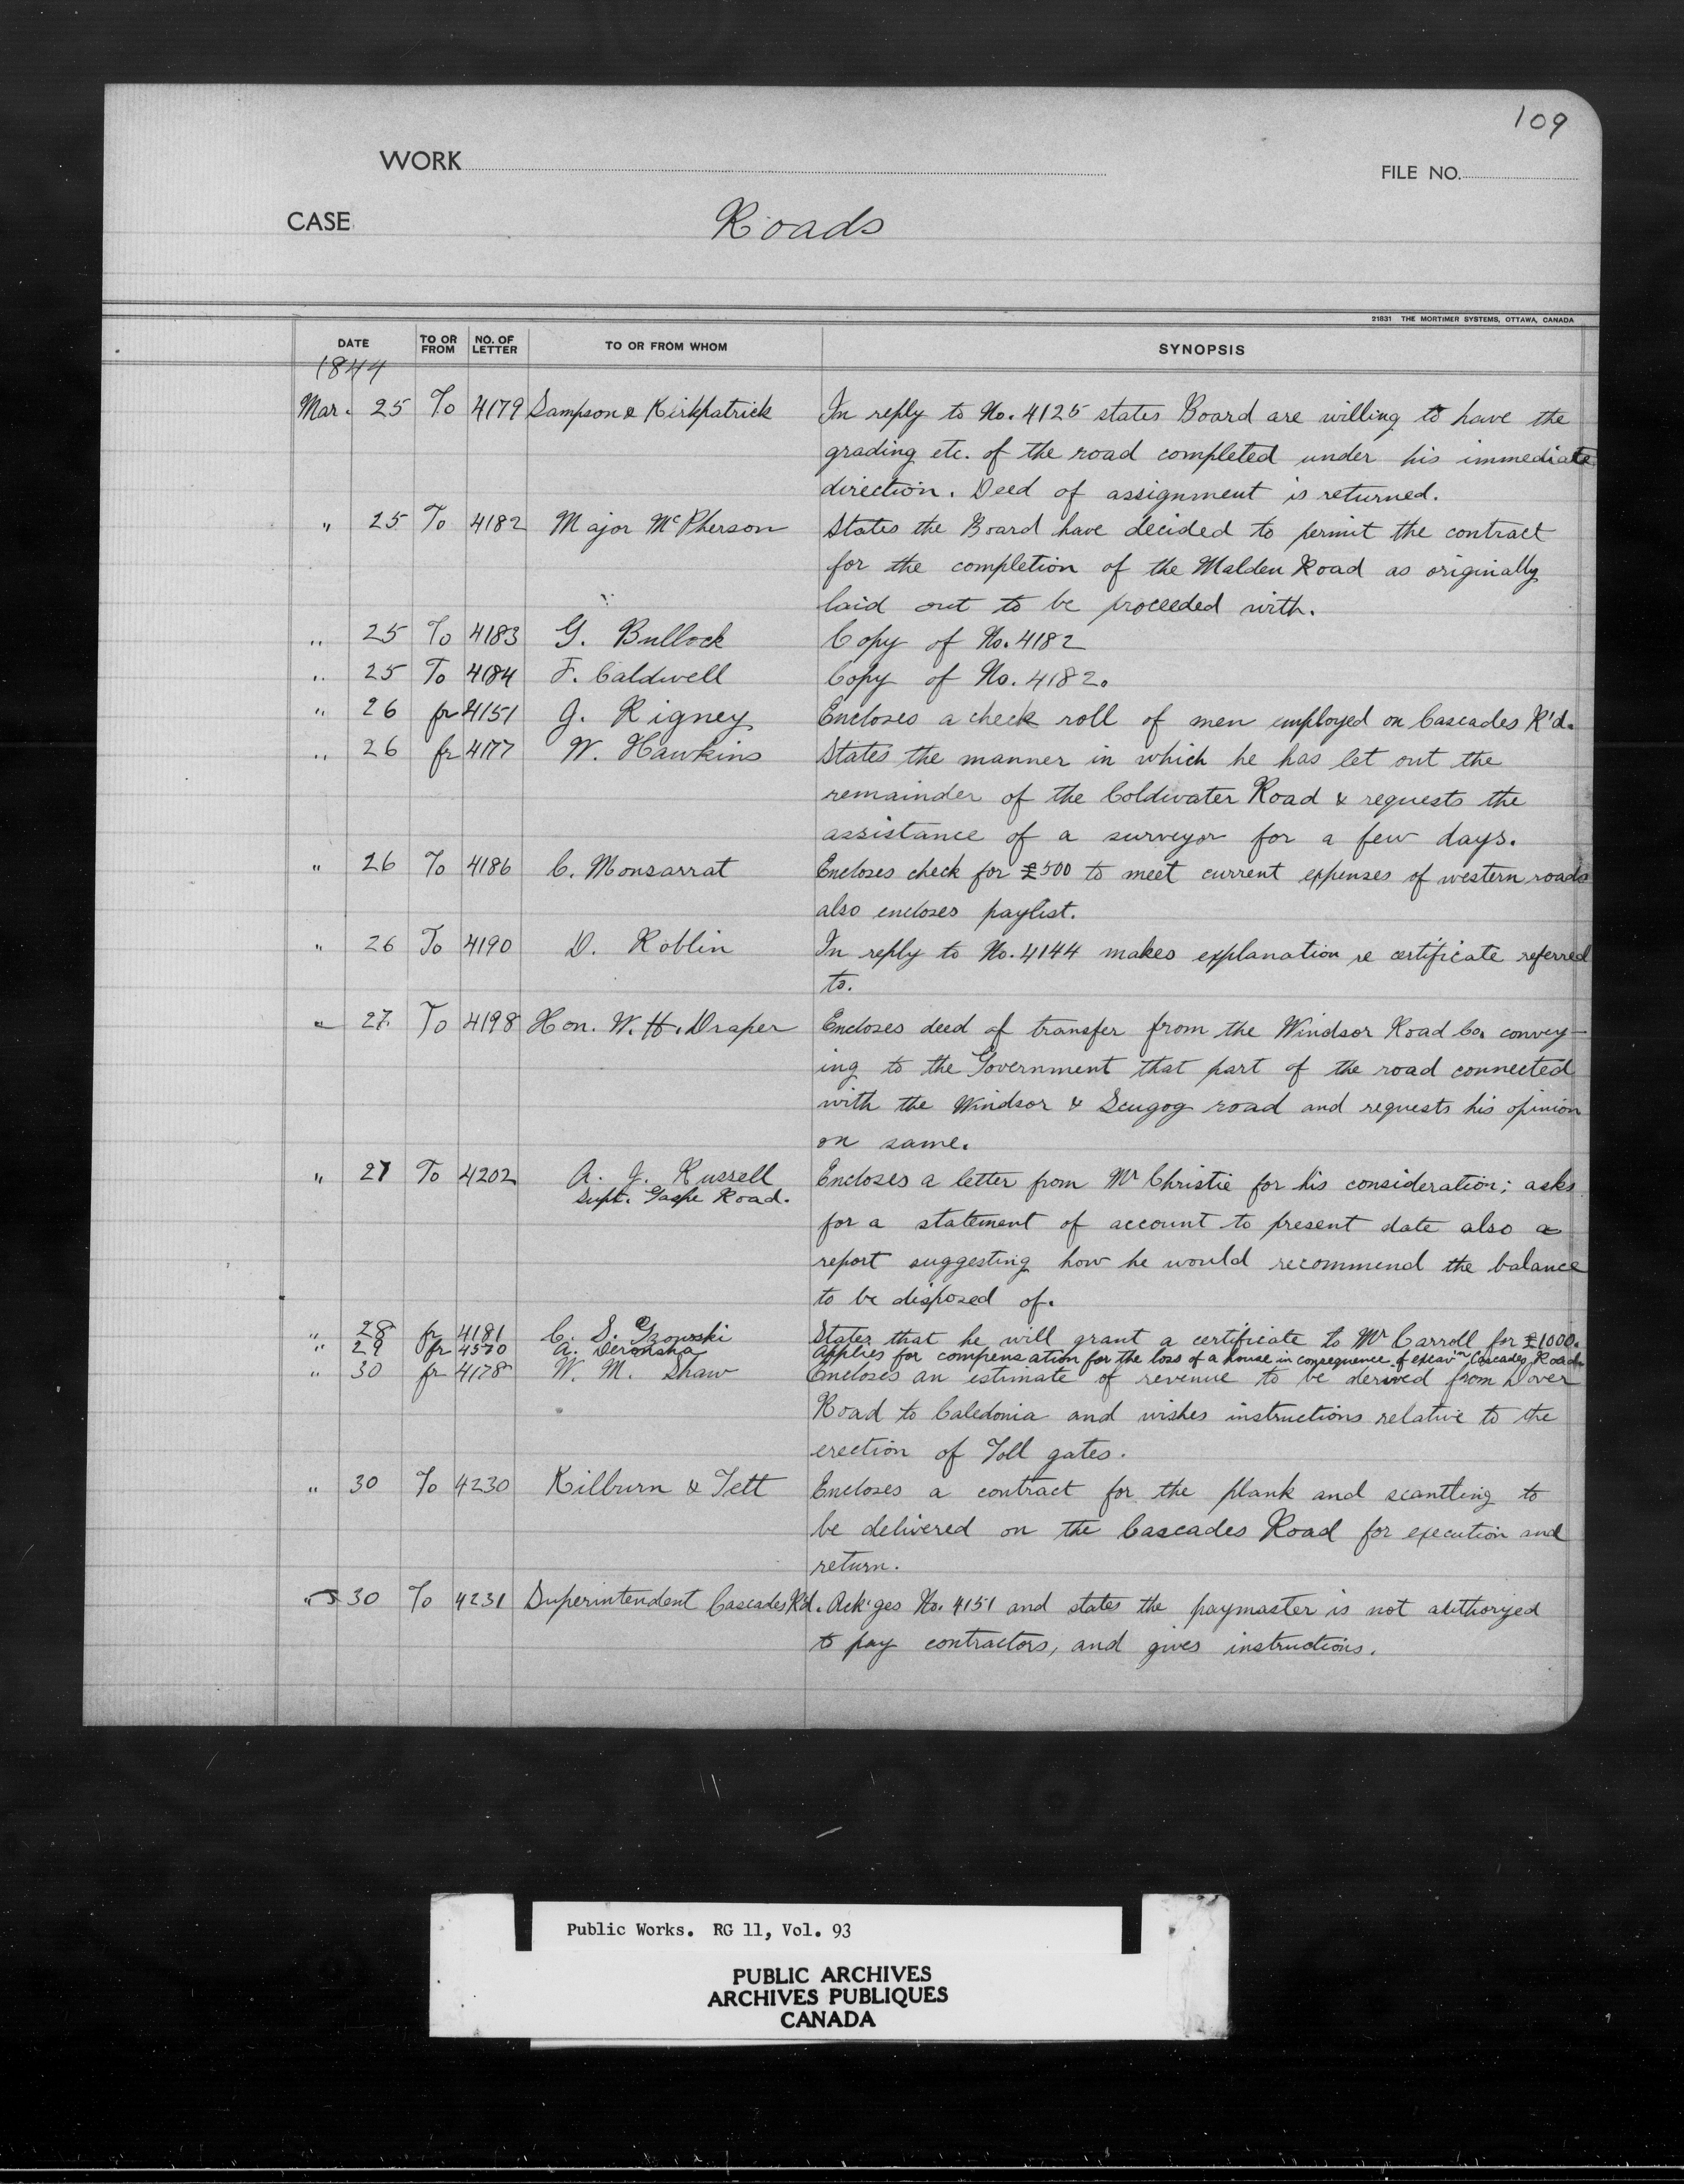 109
WORK
FILE NO.
CASE Roads
21831 THE MORTIMER SYSTEMS, OTTAWA, CANADA
DATE TO OR FROM NO. OF LETTER TO OR FROM WHOM SYNOPSIS
1844
Mar. 25 To 4179 Sampson & Kirkpatrick In reply to No. 4125 states Board are willing to have the
grading etc. of the road completed under his immediate
direction. Deed of assignment is returned.
" 25 To 4182 Major McPherson States the Board have decided to permit the contract
for the completion of the Malden Road as originally
laid out to be proceeded with.
" 25 To 4183 G. Bullock Copy of No. 4182
" 25 To 4184 F. Caldwell Copy of No. 4182.
" 26 fr 4151 J. Rigney Encloses a check roll of men employed on Cascades R'd.
" 26 fr 4177 W. Hawkins States the manner in which he has let out the
remainder of the Coldwater Road & requests the
assistance of a surveyor for a few days.
" 26 To 4186 C. Monsarrat Encloses check for £500 to meet current expenses of western roads
also encloses paylist.
" 26 To 4190 D. Roblin In reply to No. 4144 makes explanation re certificate referred
to.
" 27 To 4198 Hon. W. H. Draper Encloses deed of transfer from the Windsor Road Co. convey-
ing to the Government that part of the road connected
with the Windsor & Scugog road and requests his opinion
on same.
" 27 To 4202 A. J. Russell Encloses a letter from Mr Christie for his consideration; asks
Supt. Gaspe Road.
for a statement of account to present date also a
report suggesting how he would recommend the balance
to be disposed of.
" 28 fr 4181 C. S. Gzowski States that he will grant a certificate to Mr Carroll for £1000.
" 29 fr 4570 A. Applies for compensation for the loss of a house in consequence of excavn Cascades Road.
" 30 fr 4178 W. M. Shaw Encloses an estimate of revenue to be derived from Dover
Road to Caledonia and wishes instructions relative to the
erection of Toll gates.
" 30 To 4230 Kilburn & Tett Encloses a contract for the plank and scantling to
be delivered on the Cascades Road for execution and
return.
" 30 To 4231 Superintendent Cascades R'd. Ack'ges No. 4151 and states the paymaster is not authorized
to pay contractors, and gives instructions.
Public Works. RG 11, Vol. 93
PUBLIC ARCHIVES
ARCHIVES PUBLIQUES
CANADA